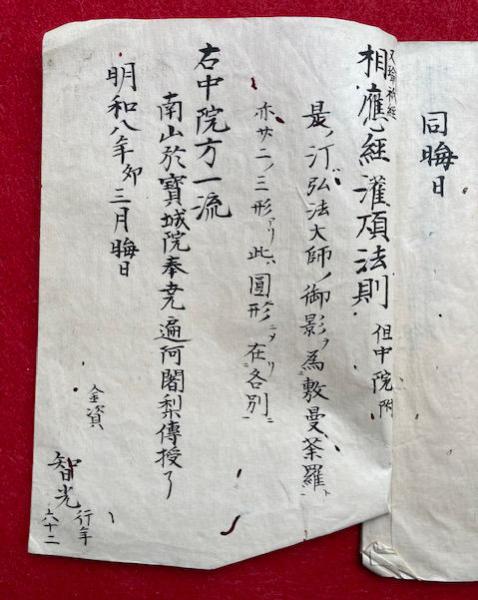 同晦日
又瑜祇経
相應経灌頂法則 但中院附
是ノ汀弘法大師ノ御影ヲ為敷曼荼羅ト
亦サニノ三形アリ此ハ圓形ニメリ在各別ニ
右中院方一流
南山於寳城院奉尭遍阿闍梨傳授了
明和八年卯三月晦日
金資
智光 行年六十二